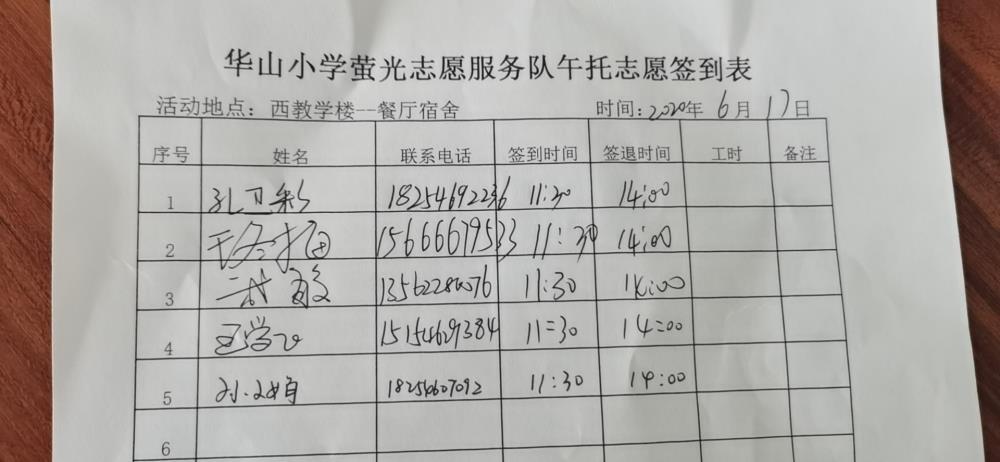 华山小学萤光志愿服务队午托志愿签到表
活动地点：西教学楼--餐厅宿舍 时间：2020年 6月 17日
序号 姓名 联系电话 签到时间 签退时间 工时 备注
1 孔卫彩 18254692236 11:30 14:00
2 15666679533 11:30 14:00
3 11:30 14:00
4 15154629384 11=30 14=00
5 11:30 14:00
6